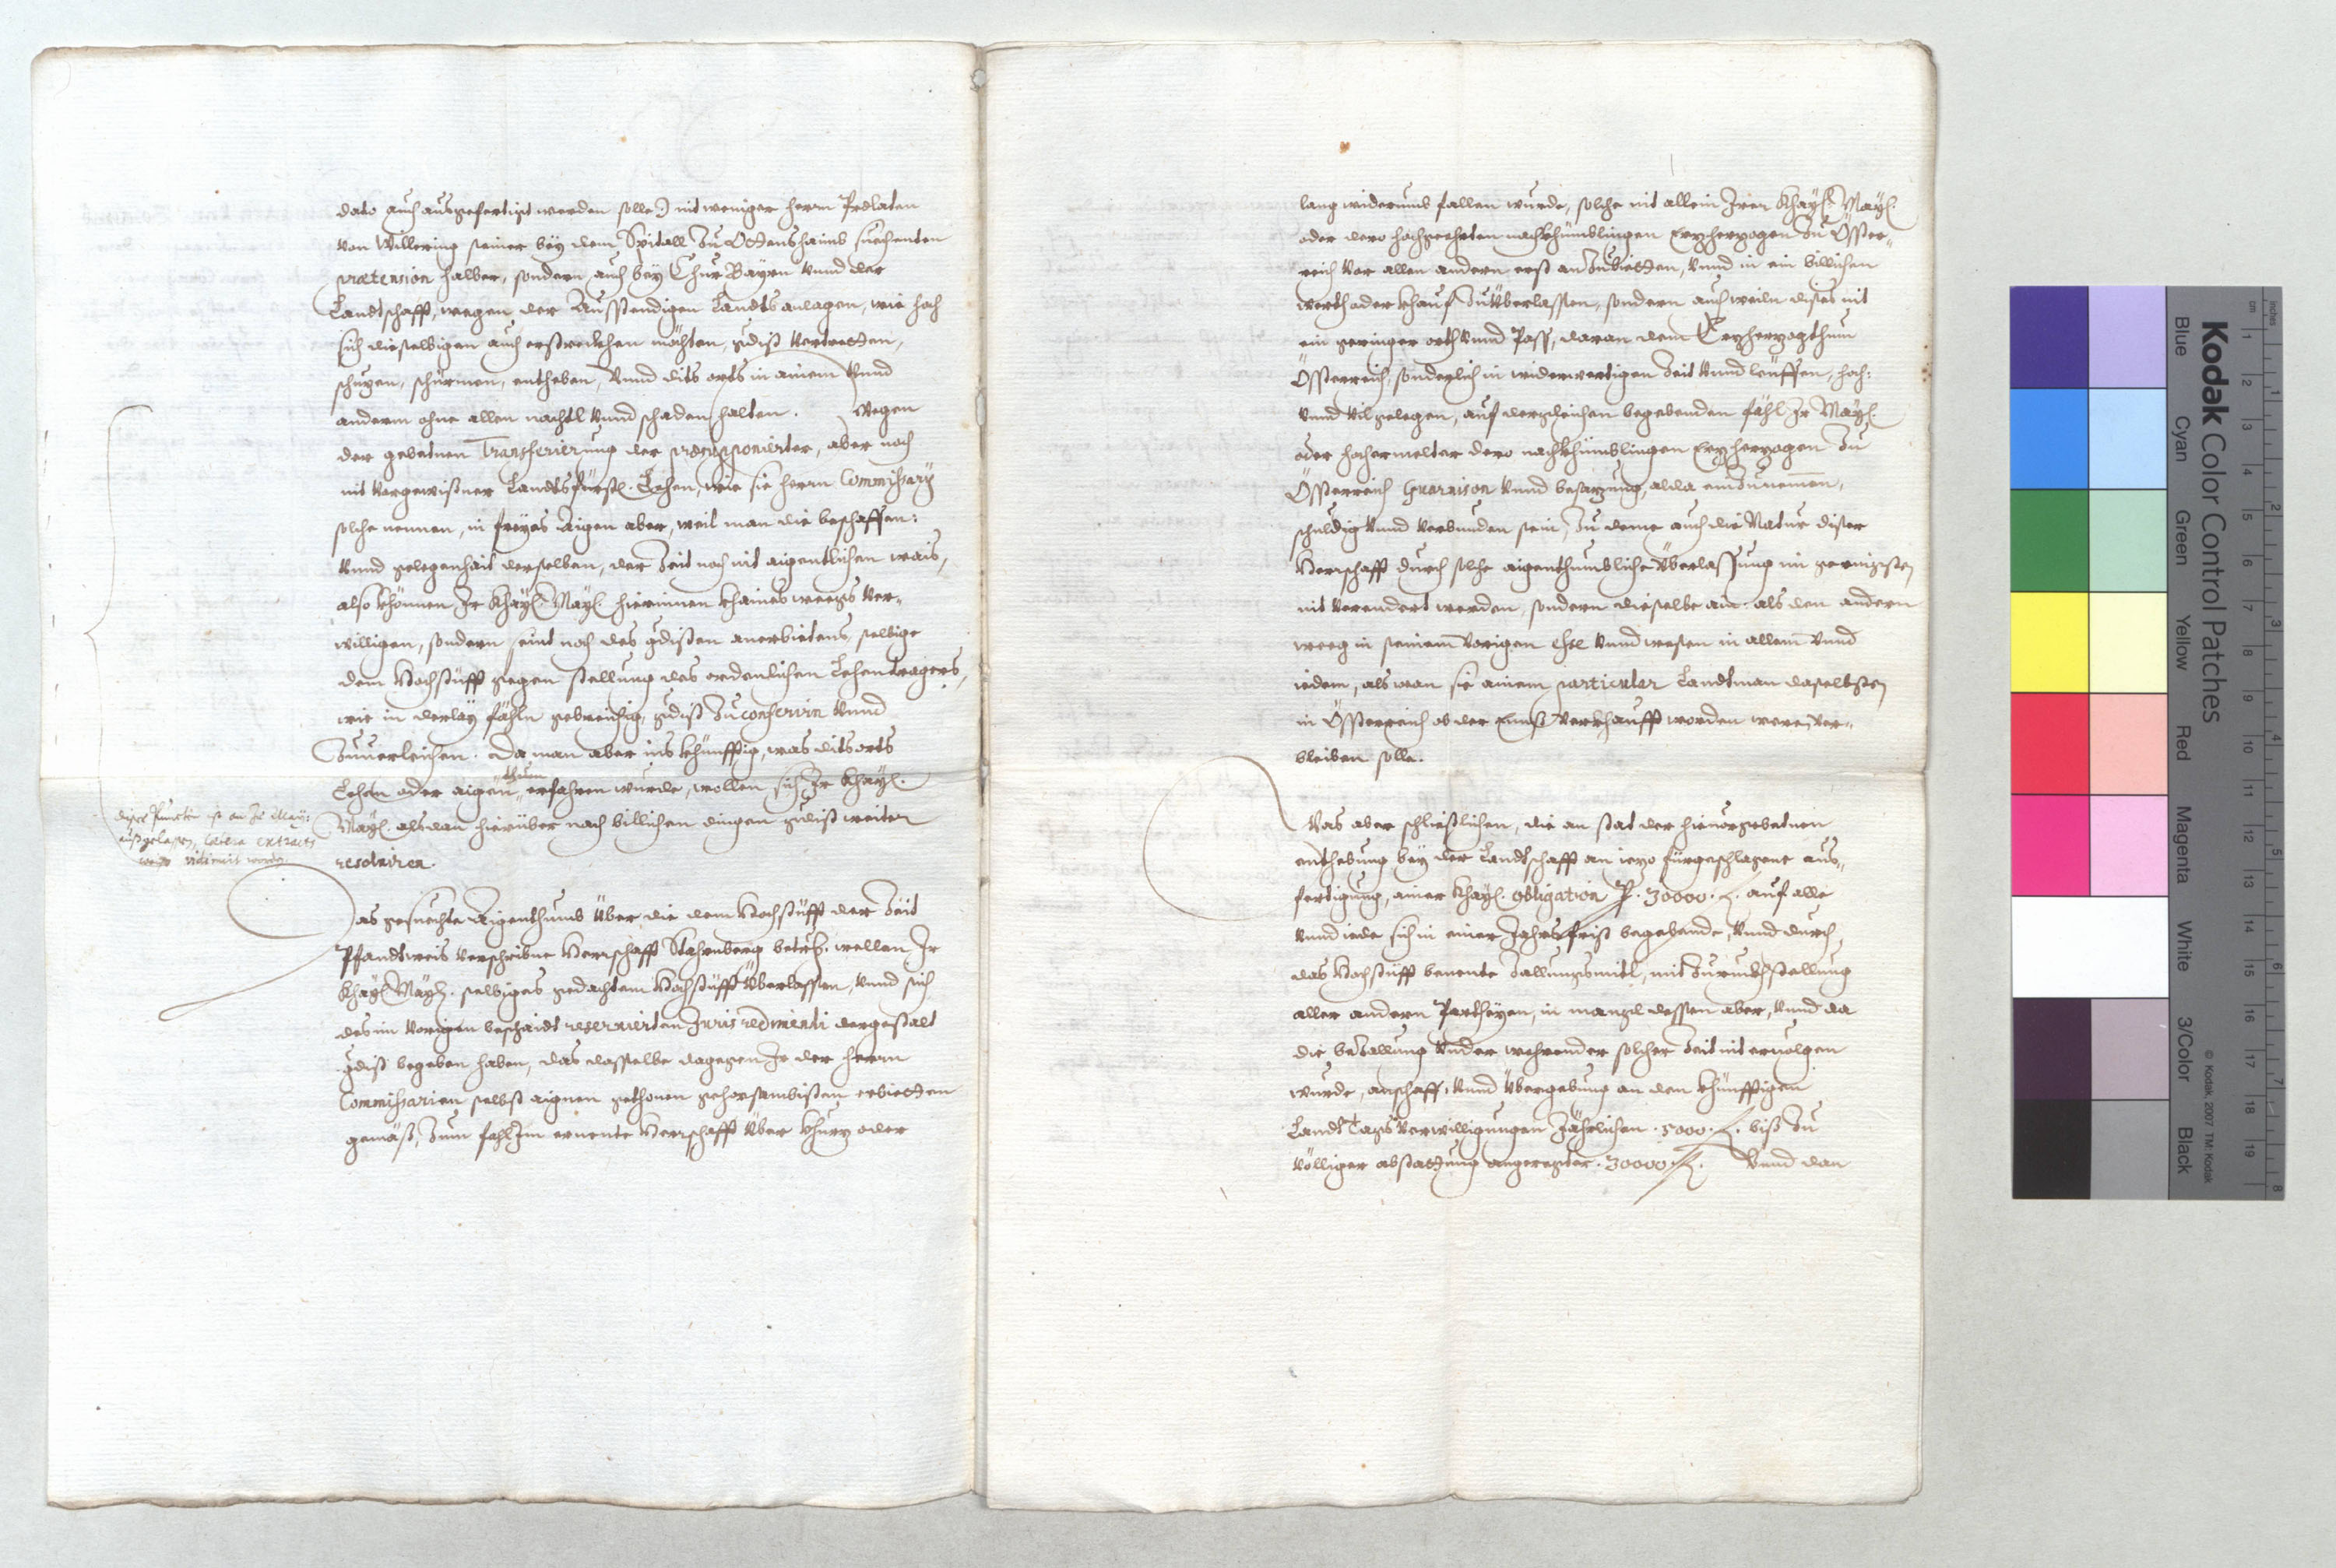 dato auch ausgefertigt werden solle) nit weniger herrn Prelaten
von Willering seiner bey dem Spitall zu Ottenshaimb suechenten
praetension halber, sondern auch bey Chur Bayrn vnnd der
Landtschafft, wegen der Ausstendigen Landtsanlagen, wie hoch
sich dieselbigen auch erstreckhen möchten, gdist vertretten,
schuzen, schürmen, entheben, vnnd dits orts in ainem vnnd
anderm ohne allen nachtl vnnd schaden halten. Wegen
der gebetnen Transferierung der aber noch
nit vergwißner Landtsfürstl. Lehen, wie sie herrn Commissary
solche nennen, in freyes Aigen aber, weil man die beschaffen:
vnnd gelegenhait derselben, der Zeit noch nit aigentlichen wais,
also khönnen Ir Khayl. Mayl. hierinnen khaines weegs ver-
willigen, sondern seint noch des gdisten anerbietens, selbige
dem Hochstüfft gegen stellung des ordenlichen Lehentragers,
wie in derley fählen gebreichig, gdist zu conferirn vnnd
zuuerleihen. Da man aber ins khünfftig, was dits orts
Lehen oder aigenthum erfahren wurde, wollen sich Ir Khayl.
Mayl. alsdan hierüber nach billichen dingen gdist weiter
resolviren.
diser Puncten ist an Ir May:
außgelassen, extracts
weise vidimirt worden
Das gesuechte Aigenthumb über die dem Hochstüfft der Zeit
Pfandtweis verschribne Herrschafft betrf. wollen Ir
Khayl. Mayl. selbiges gedachtem Hochstüfft überlassen, vnnd sich
des im vorigen beschaidt reservierten Juris redimendi dergestalt
gdist begeben haben, das dasselbe dagegen Ir der herrn
Commissarien selbst aignen gethonen gehorsambisten erbietten
gemäß, zum fahl Im ernente Herrschafft über khurz oder
lang widerumb fallen wurde, solche nit allein Irer Khayl. Mayl.
oder dero hochgeehrten nachkhümblingen Erzherzogen zu Össter-
reich vor allen andern erst anzubietten, vnnd in ein billichen
werth oder khauf zu überlassen, sondern auch weiln dises nit
ein geringer orth vnnd Pass, daran dem Erzherzogthum
Össterreich, sonderlich in widerwertigen Zeit vnnd leuffen, hoch:
vnnd vil gelegen, auf dergleichen begebenden fähl Ir Mayl.
oder hochermelter dero nachkhümblingen Erzherzogen zu
Össterreich Guarnison vnnd besazung, alda einzunemmen,
schuldig vnnd verbunden sein, zu deme auch die Natur diser
Herrschafft durch solche aigenthumbliche überlassung im geringsten
nit verendert werden, sondern dieselbe ain als den andern
weeg in seinem vorigen esse vnnd wesen in allem vnnd
iedem, als wan sie ainem particular Landtman daselbsten
in Össterreich ob der Ennß verkhaufft worden were, ver-
bleiben solle.
Was aber schließlichen, die an stat der hieuorgebetnen
enthebung bey der Landtschafft an iezo fürgeschlagene aus-
fertigung, ainer Khayl. obligation P. 30000. f. auf alle
vnnd iede sich in einer Jahrsfrist begebende, vnnd durch
das Hochstüfft benente Zallungsmitl, mit zuruckhstellung
aller andern Partheyen, in mangl dessen aber, vnnd da
die bezallung vnder wehrender solcher Zeit nit eruolgen
wurde, anschaff: vnnd übergebung an den khünfftigen
Landt Tags verwilligungen Jährlichen. 5000. f. biß zu
völliger abstattung angeregter. 30000. f. Vnnd dan